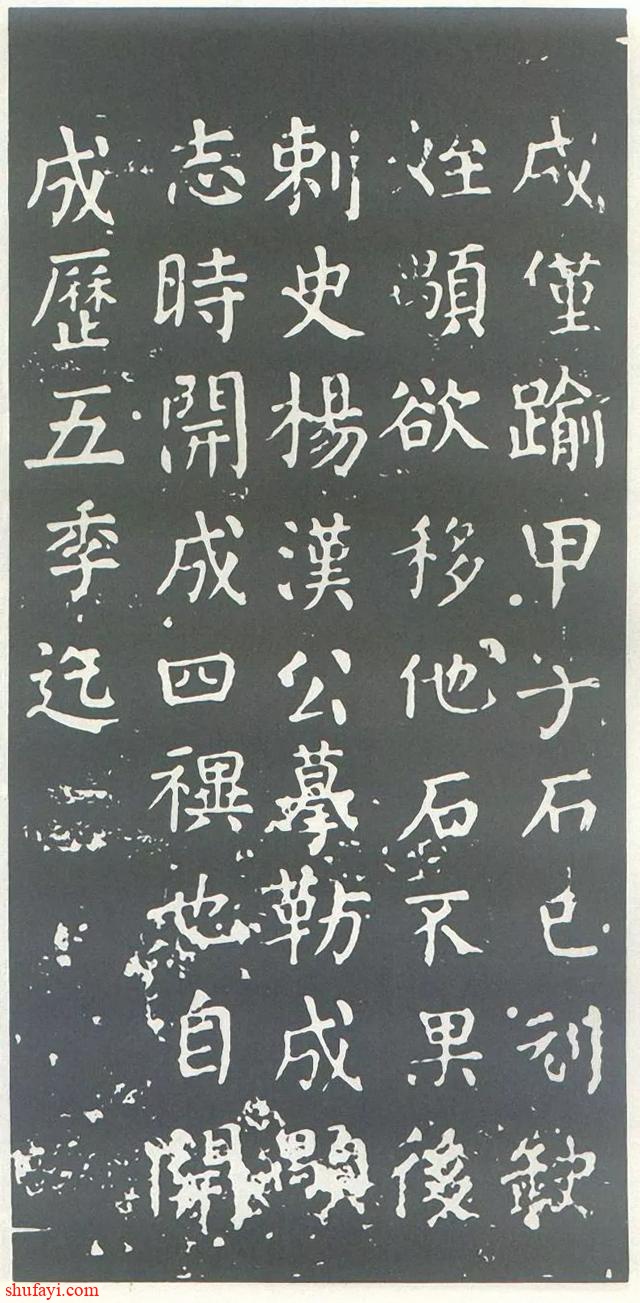 成僅踰甲子石已刓缺
姪顒欲移他石不果後
刺史楊漢公摹勒成顒
志時開成四禩也自開
成歷五季迄
shufayi.com